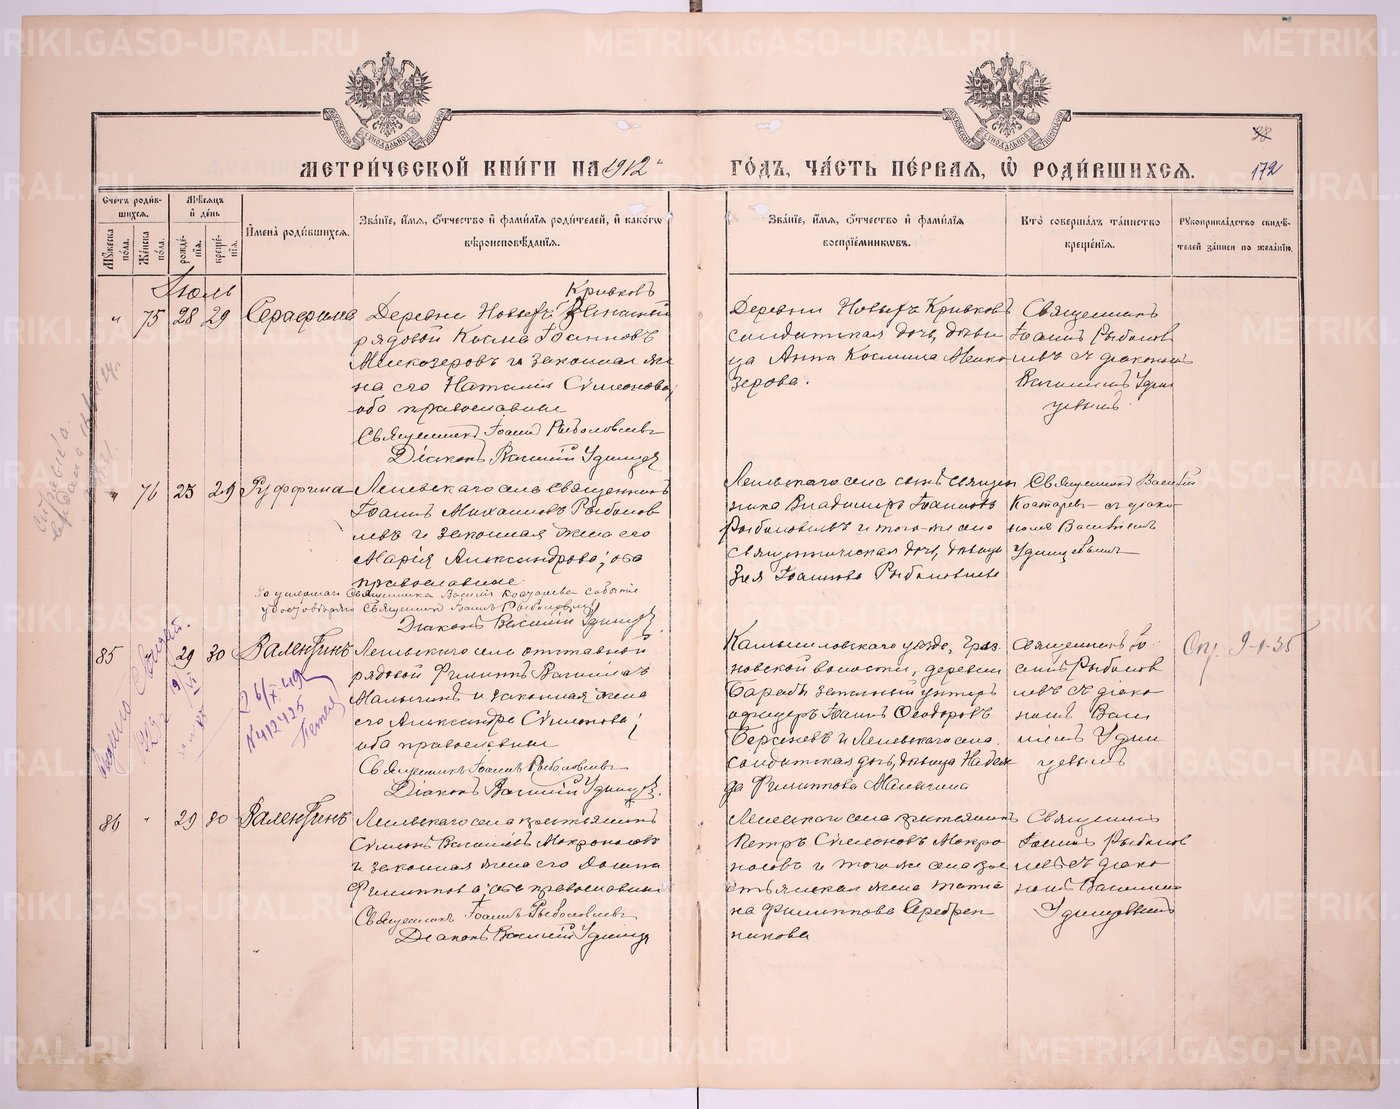 МЕТРИ́ЧЕСКОЙ КНИ́ГИ НА 1912
ГО́ДЪ, ЧА́СТЬ ПЕ́РВАЯ, Ѽ РОДИ́ВШИХСѦ.
38
172
Сче́тъ роди́в-
шихся.
Мѣ́сяцъ
и҆ де́нь
Мꙋ́жеска
по́ла.
Же́нска
по́ла.
рожде́-
нїя.
креще́-
нїя.
И҆мена̀ роди́вшихся.
Зва́нїе, и҆́мя, ѻ҆́тчество и҆ фами́лїя роди́телей, и҆ како́гѡ
вѣроисповѣ́данїя.
Зва́нїе, и҆́мя, ѻ҆́тчество и҆ фами́лїя
воспрїе́мникѡвъ.
Кто̀ соверша́лъ та́инство
креще́нїя.
Рꙋкоприкла́дство свидѣ́-
телей за́писи по жела́нїю.
Іюль
Кривковъ
" 75 28 29 Серафима Деревни Новыхъ
рядовой Косма Іоанновъ
Мелкозеровъ и законная же
на его Наталія Симеонова,
оба православные
Священникъ Іоаннъ Рыболовлевъ
Діаконъ Василій Удинцев
Деревни Новыхъ Кривковъ
солдатская дочь, дѣви
ца Анна Космина Мелко
зерова.
Священникъ
Іоаннъ Рыболов
левъ съ діакономъ
Василіемъ Удин
цевымъ.
" 76 25 29 Руффина Леневскаго села священникъ
Іоаннъ Михаиловъ Рыболов
левъ и законная жена его
Марія Александрова; оба
православные
За умершаго Священника Василія Костарева событіе
удостовѣряю Священникъ Іоаннъ Рыболовлевъ
Діаконъ Василій Удинцев.
Леневскаго села сынъ священ
ника Владимиръ Іоанновъ
Рыболовлевъ и того-же села
священническая дочь, дѣвица
Зоя Іоаннова Рыболовлева
Священникъ Василій
Костаревъ съ діако-
номъ Василіемъ
Удинцевымъ
85 29 30 Валентинъ Леневскаго села отставной
рядовой Филиппъ Василіевъ
Малыгинъ и законная жена
его Александра Симеонова;
оба православные
Священникъ Іоаннъ Рыболовлевъ
Діаконъ Василій Удинцев.
6/X 49
№ 412425
Камышловскаго уѣзда, Гряз
новской волости, деревни
запасный унтеръ
офицеръ Іоаннъ Ѳеодоровъ
Берсеневъ и Леневскаго села
солдатская дочь, дѣвица Надеж
да Филиппова Малыгина
Священникъ Іо-
аннъ Рыболов
левъ съ діако
номъ Васи
ліемъ Удин
цевымъ
9-I-35
86 " 29 30 Валентинъ Леневскаго села крестьянинъ
Симеонъ Василіевъ Мокроносовъ
и законная жена его Домна
Филиппова; оба православные
Священникъ Іоаннъ Рыболовлевъ
Діаконъ Василій Удинцев
Леневскаго села крестьянинъ
Петръ Симеоновъ Мокро
носовъ и того же села кре
стьянская жена Татиа
на Филиппова Серебрен
никова
Священникъ
Іоаннъ Рыболов
левъ съ діако
номъ Василіемъ
Удинцевымъ
METRIKI.GASO-URAL.RU